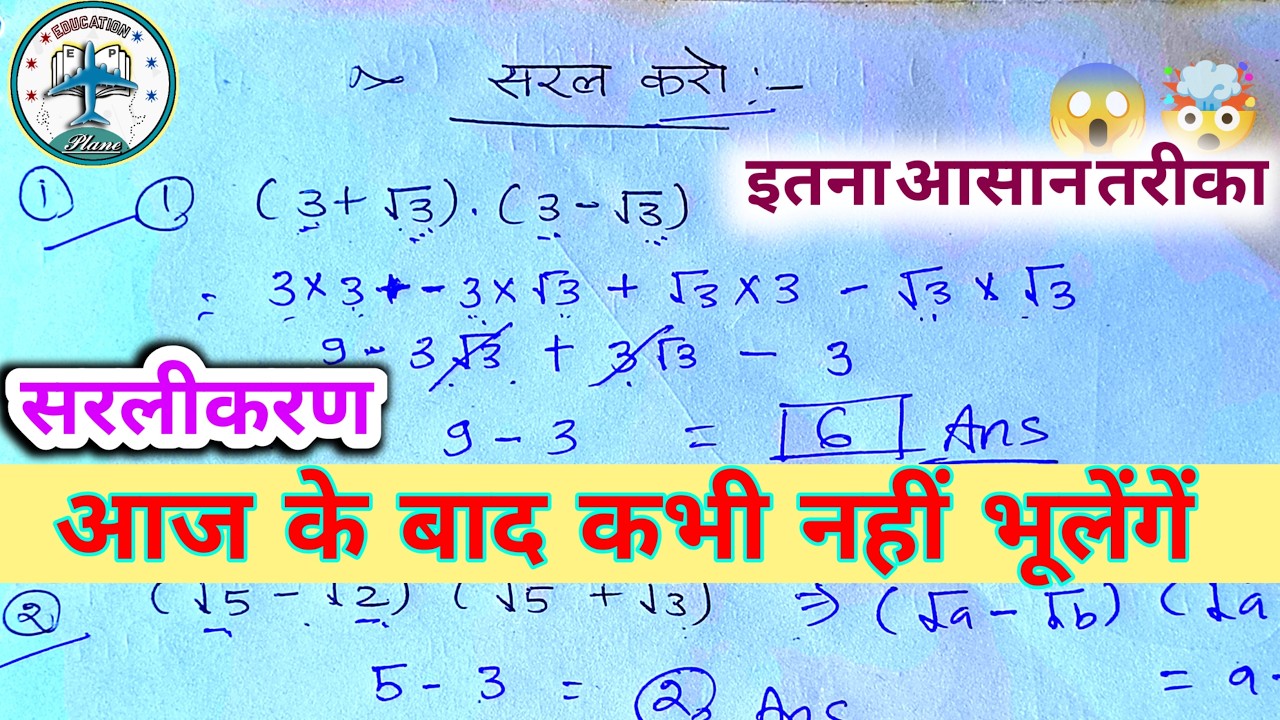 EDUCATION
E P
Plane
सरल करो :-
इतना आसान तरीका
i ① (3 + √3) . (3 - √3)
= 3 × 3 - 3 × √3 + √3 × 3 - √3 × √3
9 - 3√3 + 3√3 - 3
सरलीकरण
9 - 3 = 6 Ans
आज के बाद कभी नहीं भूलेंगें
② (√5 - √2) (√5 + √3) ⇒ (√a - √b) (√a
5 - 3 = 2 Ans = a -